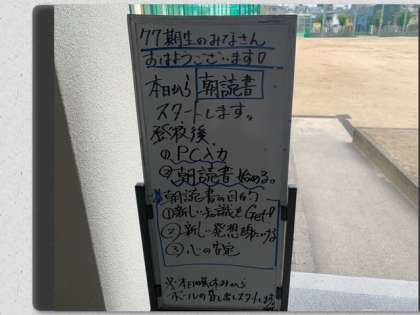 77期生のみなさん
おはようございます!
本日から 朝読書
スタートします。
登校後、
①PC入力
②朝読書始める。
朝読書の目的
①新しい知識をGet!
②新しい発想を
③心の安定
※本日昼休みから
ボールの貸し出しスタートします